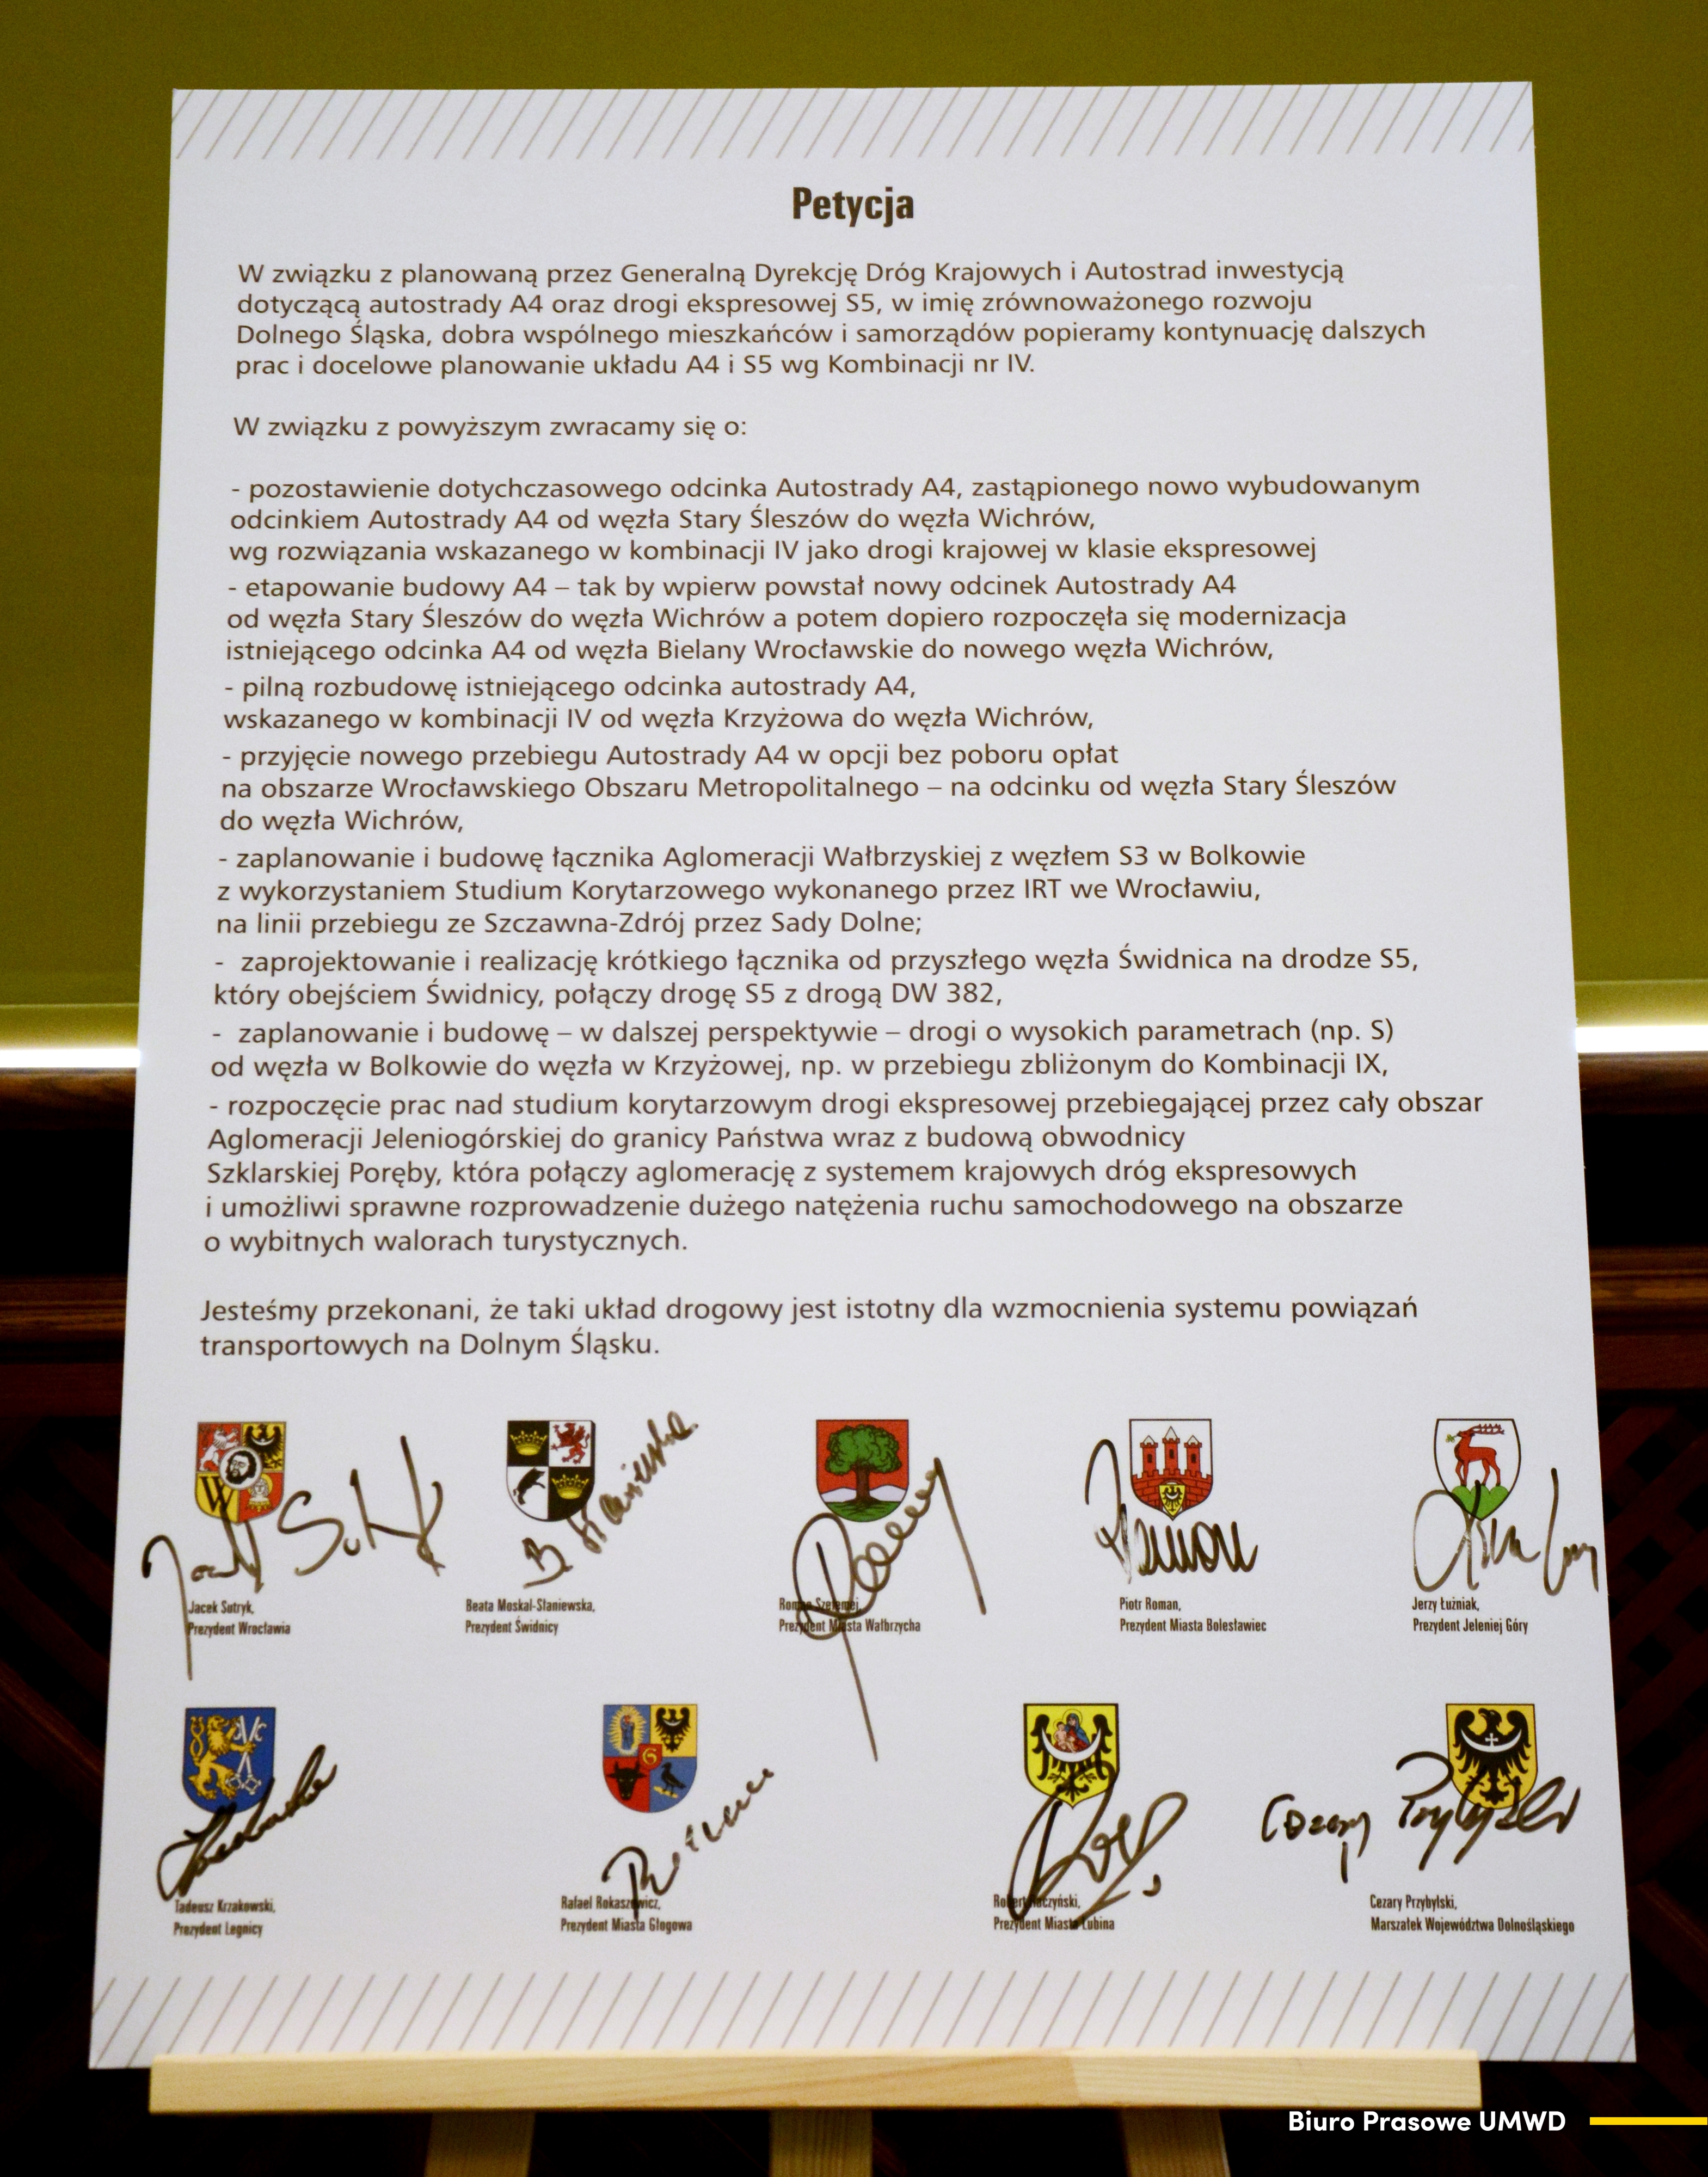 Petycja
W związku z planowaną przez Generalną Dyrekcję Dróg Krajowych i Autostrad inwestycją
dotyczącą autostrady A4 oraz drogi ekspresowej S5, w imię zrównoważonego rozwoju
Dolnego Śląska, dobra wspólnego mieszkańców i samorządów popieramy kontynuację dalszych
prac i docelowe planowanie układu A4 i S5 wg Kombinacji nr IV.
W związku z powyższym zwracamy się o:
- pozostawienie dotychczasowego odcinka Autostrady A4, zastąpionego nowo wybudowanym
odcinkiem Autostrady A4 od węzła Stary Śleszów do węzła Wichrów,
wg rozwiązania wskazanego w kombinacji IV jako drogi krajowej w klasie ekspresowej
- etapowanie budowy A4 – tak by wpierw powstał nowy odcinek Autostrady A4
od węzła Stary Śleszów do węzła Wichrów a potem dopiero rozpoczęła się modernizacja
istniejącego odcinka A4 od węzła Bielany Wrocławskie do nowego węzła Wichrów,
- pilną rozbudowę istniejącego odcinka autostrady A4,
wskazanego w kombinacji IV od węzła Krzyżowa do węzła Wichrów,
- przyjęcie nowego przebiegu Autostrady A4 w opcji bez poboru opłat
na obszarze Wrocławskiego Obszaru Metropolitalnego – na odcinku od węzła Stary Śleszów
do węzła Wichrów,
- zaplanowanie i budowę łącznika Aglomeracji Wałbrzyskiej z węzłem S3 w Bolkowie
z wykorzystaniem Studium Korytarzowego wykonanego przez IRT we Wrocławiu,
na linii przebiegu ze Szczawna-Zdrój przez Sady Dolne;
- zaprojektowanie i realizację krótkiego łącznika od przyszłego węzła Świdnica na drodze S5,
który obejściem Świdnicy, połączy drogę S5 z drogą DW 382,
- zaplanowanie i budowę – w dalszej perspektywie – drogi o wysokich parametrach (np. S)
od węzła w Bolkowie do węzła w Krzyżowej, np. w przebiegu zbliżonym do Kombinacji IX,
- rozpoczęcie prac nad studium korytarzowym drogi ekspresowej przebiegającej przez cały obszar
Aglomeracji Jeleniogórskiej do granicy Państwa wraz z budową obwodnicy
Szklarskiej Poręby, która połączy aglomerację z systemem krajowych dróg ekspresowych
i umożliwi sprawne rozprowadzenie dużego natężenia ruchu samochodowego na obszarze
o wybitnych walorach turystycznych.
Jesteśmy przekonani, że taki układ drogowy jest istotny dla wzmocnienia systemu powiązań
transportowych na Dolnym Śląsku.
Jacek Sutryk,
Prezydent Wrocławia
Beata Moskal-Słaniewska,
Prezydent Świdnicy
Roman Szełemej,
Prezydent Miasta Wałbrzycha
Piotr Roman,
Prezydent Miasta Bolesławiec
Jerzy Łużniak,
Prezydent Jeleniej Góry
Tadeusz Krzakowski,
Prezydent Legnicy
Rafael Rokaszewicz,
Prezydent Miasta Głogowa
Robert Raczyński,
Prezydent Miasta Lubina
Cezary Przybylski,
Marszałek Województwa Dolnośląskiego
Biuro Prasowe UMWD